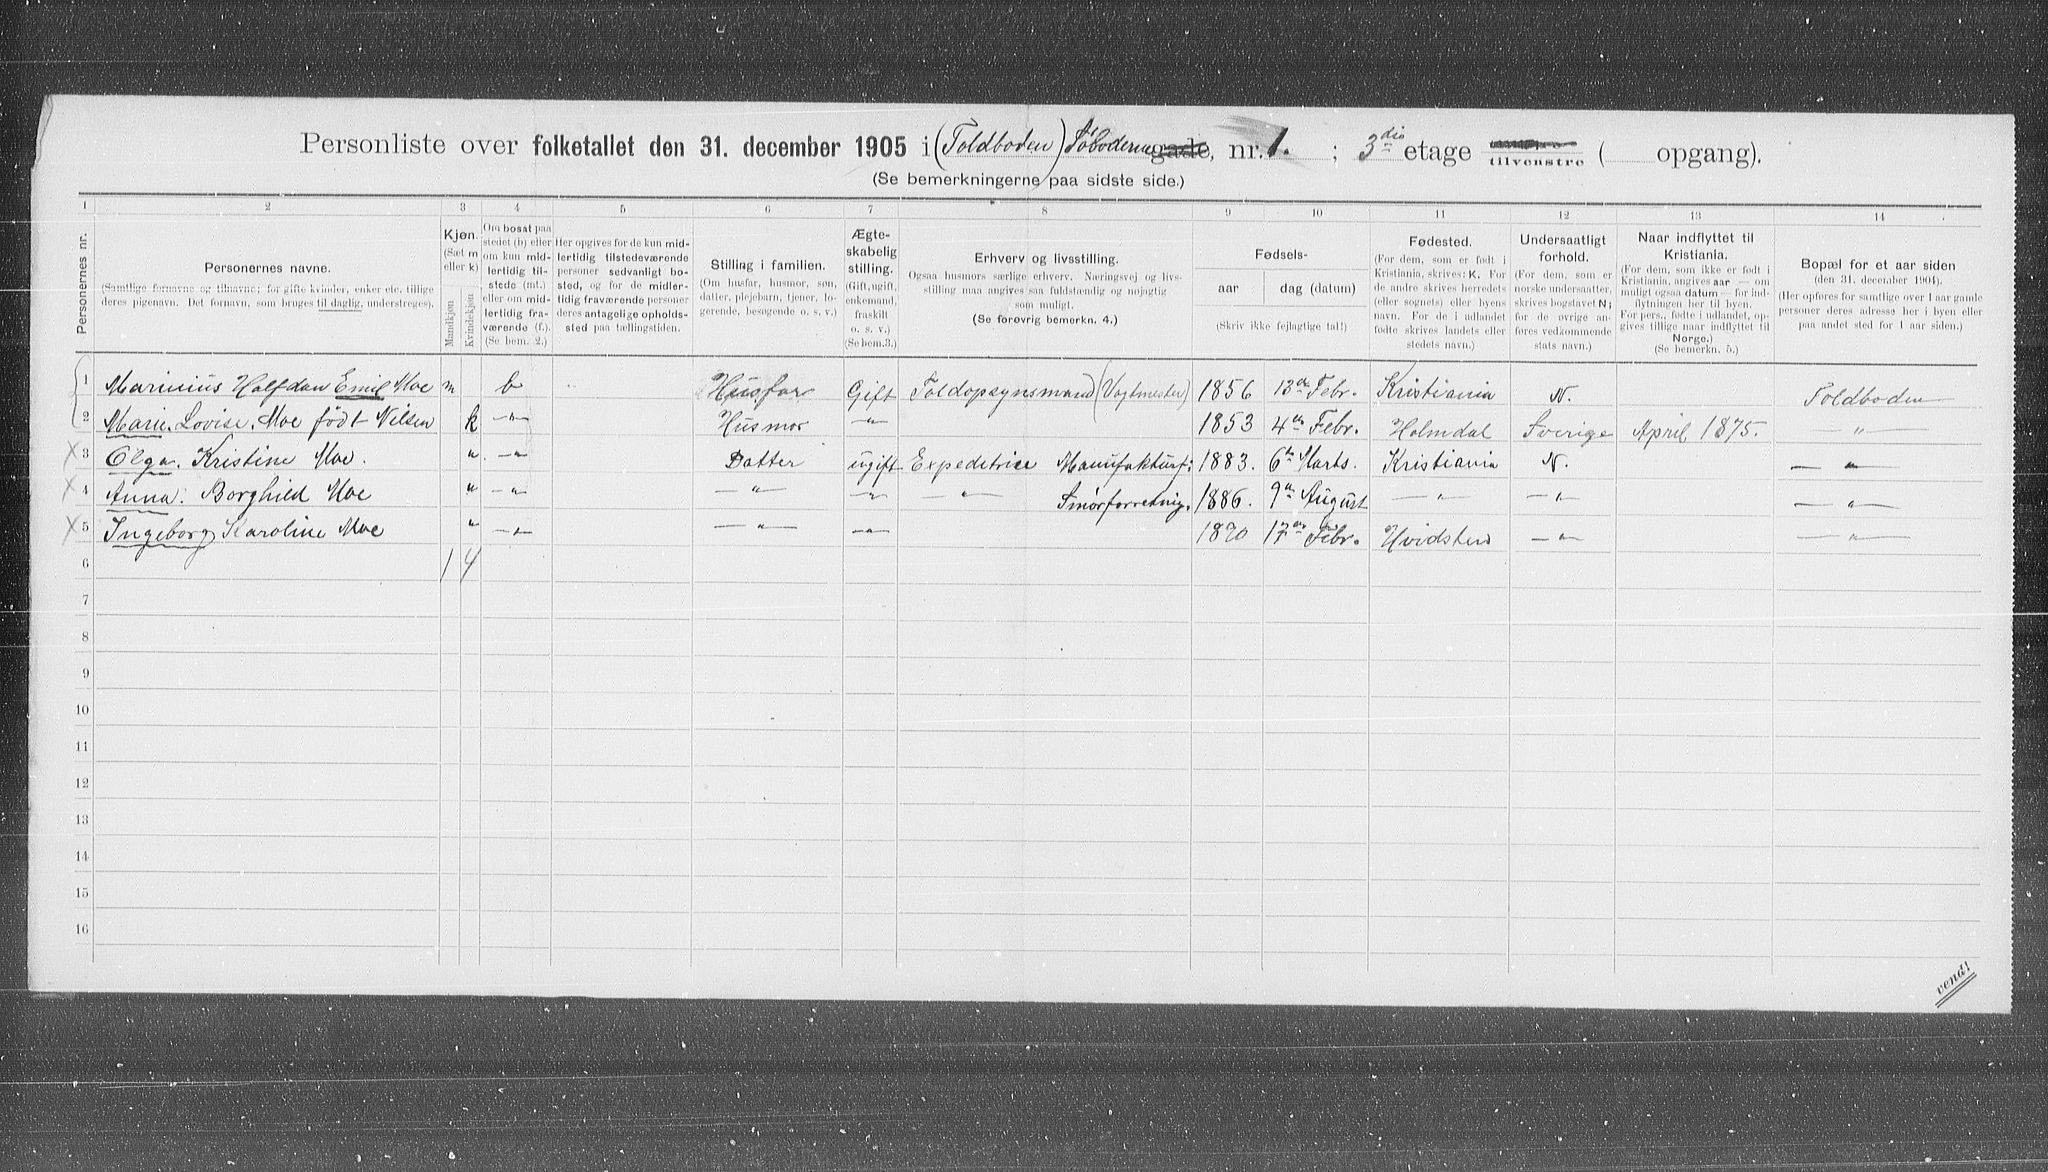 Personliste over folketallet den 31. december 1905 i (Toldboden) Søboderne gade, nr. 1. ; 3die etage tilvenstre ( opgang).
(Se bemerkningerne paa sidste side.)
1 2 3 4 5 6 7 8 9 10 11 12 13 14
Personernes nr.
Personernes navne.
(Samtlige fornavne og tilnavne; for gifte kvinder, enker etc. tillige deres pigenavn. Det fornavn, som bruges til daglig, understreges).
Kjøn.
(Sæt m eller k)
Mandkjøn
Kvindekjøn
Om bosat paa stedet (b) eller om kun midlertidig tilstede (mt.) eller om midlertidig fraværende (f.). (Se bem. 2.)
Her opgives for de kun midlertidig tilstedeværende personer sedvanligt bosted, og for de midlertidig fraværende personer deres antagelige opholdssted paa tællingstiden.
Stilling i familien.
(Om husfar, husmor, søn, datter, plejebarn, tjener, logerende, besøgende o. s. v.)
Ægteskabelig stilling.
(Gift, ugift, enkemand, fraskilt o. s. v.)
(Se bem. 3.)
Erhverv og livsstilling.
Ogsaa husmors særlige erhverv. Næringsvej og livsstilling maa angives saa fuldstændig og nøjagtig som muligt.
(Se forøvrig bemerkn. 4.)
Fødsels-
aar dag (datum)
(Skriv ikke fejlagtige tal!)
Fødested.
(For dem, som er født i Kristiania, skrives: K. For de andre skrives herredets (eller sognets) eller byens navn. For de i udlandet fødte skrives landets eller stedets navn.)
Undersaatligt forhold.
(For dem, som er norske undersaatter, skrives bogstavet N; for de øvrige anføres vedkommende stats navn.)
Naar indflyttet til Kristiania.
(For dem, som ikke er født i Kristiania, angives aar — om muligt ogsaa datum — for indflytningen her til byen. For pers., fødte i udlandet, opgives tillige naar indflyttet til Norge.)
(Se bemerkn. 5.)
Bopæl for et aar siden
(den 31. december 1904).
(Her opføres for samtlige over 1 aar gamle personer deres adresse her i byen eller paa andet sted for 1 aar siden.)
1 Marinius Halfdan Emil Moe m b Husfar Gift Toldopsynsmand (Vagtmester) 1856 13de Febr. Kristiania N. Toldboden
2 Marie. Lovise. Moe født Nilsen k —"— Husmor —"— 1853 4de Febr. Holmdal Sverige April 1875. —"—
3 Olga. Kristine Moe. " —"— Datter ugift Expeditrice Manufakturf: 1883. 6te Marts. Kristiania N. —"—
4 Anna. Borghild Moe " —"— —"— —"— —"— Smørforretnig. 1886. 9de August —"— —"— —"—
5 Ingeborg Karoline Moe " —"— —"— —"— 1890 17de Febr. Hvidsten —"— —"—
6 1 4
7
8
9
10
11
12
13
14
15
16
vend!